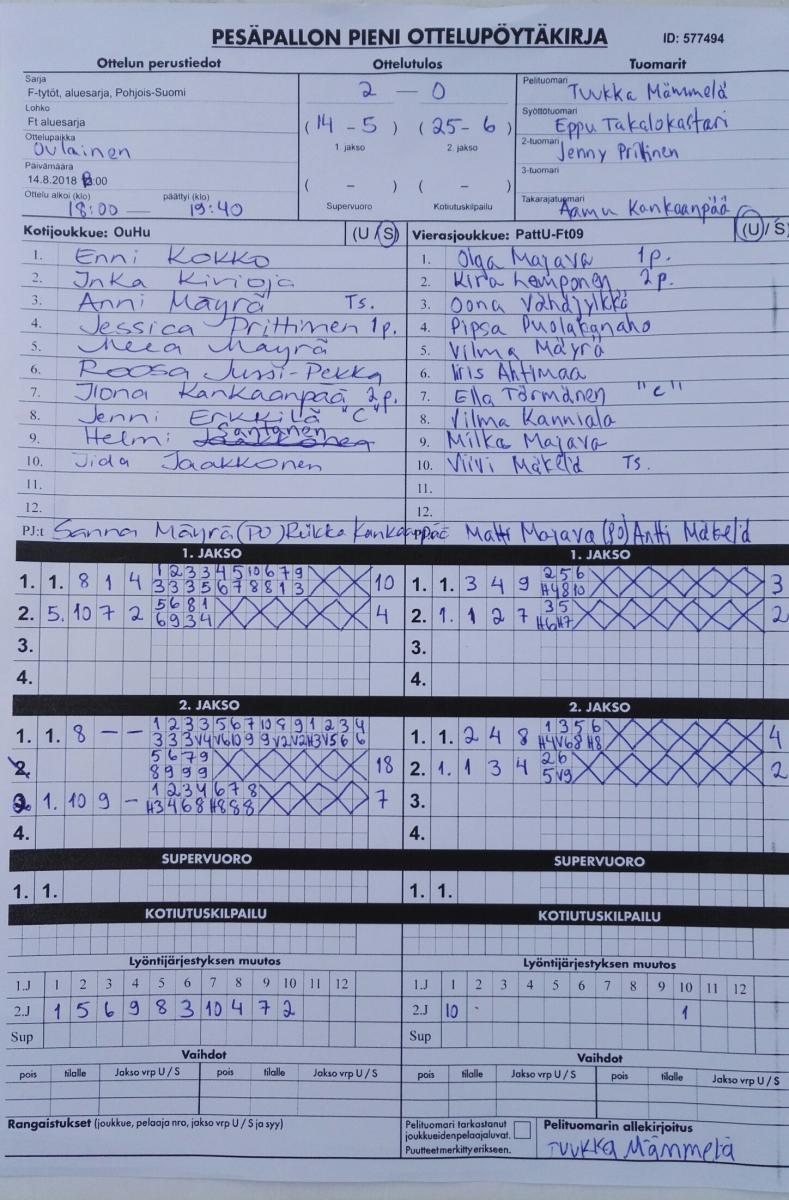 PESÄPALLON PIENI OTTELUPÖYTÄKIRJA ID: 577494
Ottelun perustiedot Ottelutulos Tuomarit
Sarja
F-tytöt, aluesarja, Pohjois-Suomi
Lohko
Ft aluesarja
Ottelupaikka
Oulainen
Päivämäärä
14.8.2018 :00
Ottelu alkoi (klo) päättyi (klo)
18:00 — 19:40
2 — 0
(14 - 5) (25 - 6)
1. jakso 2. jakso
( - ) ( - )
Supervuoro Kotiutuskilpailu
Pelituomari Tuukka Mämmelä
Syöttötuomari
Eppu Takalokastari
2-tuomari Jenny Prittinen
3-tuomari
Takarajatuomari Aamu Kankaanpää
Kotijoukkue: OuHu (U / S)
1. Enni Kokko
2. Inka Kivioja
3. Anni Mäyrä Ts.
4. Jessica Prittinen 1p.
5. Meea Mäyrä
6. Roosa Jussi-Pekka
7. Ilona Kankaanpää 2p.
8. Jenni Erkkilä "C"
9. Helmi Santanen
10. Iida Jaakkonen
11.
12.
Vierasjoukkue: PattU-Ft09 (U / S)
1. Olga Majava 1p.
2. Kira Lamponen 2p.
3. Oona Vähäjylkkä
4. Pipsa Puolakanaho
5. Vilma Mäyrä
6. Iiris Ahtimaa
7. Ella Törmänen "C"
8. Vilma Kanniala
9. Milka Majava
10. Viivi Mäkelä Ts.
11.
12.
PJ:t Sanna Mäyrä (PJ) Riikka Kankaanpää Matti Majava (PJ) Antti Mäkelä
1. JAKSO 1. JAKSO
1. 1. 8 1 4 1 2 3 3 4 5 10 6 7 9 10 1. 1. 3 4 9 2 5 6 3
3 3 3 5 6 7 8 8 1 3 H4 8 10
2. 5. 10 7 2 5 6 8 1 4 2. 1. 1 2 7 3 5 2
6 9 3 4 H6 H7
3. 3.
4. 4.
2. JAKSO 2. JAKSO
1. 1. 8 — — 1 2 3 3 5 6 7 10 8 9 1 2 3 4 1. 1. 2 4 8 1 3 5 6 4
3 3 3 V4 V6 10 9 9 V2 V2 H3 V5 6 6 H4 V6 8 H8
5 6 7 9 18 2. 1. 1 3 4 2 6 2
8 9 9 9 5 V9
1. 10 9 — 1 2 3 4 6 7 8 7 3.
H3 4 6 8 H8 8 8
4. 4.
SUPERVUORO SUPERVUORO
1. 1. 1. 1.
KOTIUTUSKILPAILU KOTIUTUSKILPAILU
Lyöntijärjestyksen muutos Lyöntijärjestyksen muutos
1.J 1 2 3 4 5 6 7 8 9 10 11 12 1.J 1 2 3 4 5 6 7 8 9 10 11 12
2.J 1 5 6 9 8 3 10 4 7 2 2.J 10 1
Sup Sup
Vaihdot Vaihdot
pois tilalle Jakso vrp U / S pois tilalle Jakso vrp U / S pois tilalle Jakso vrp U / S pois tilalle Jakso vrp U / S
Rangaistukset (joukkue, pelaaja nro, jakso vrp U / S ja syy)
Pelituomari tarkastanut
joukkueidenpelaajaluvat.
Puutteet merkitty erikseen.
Pelituomarin allekirjoitus
Tuukka Mämmelä